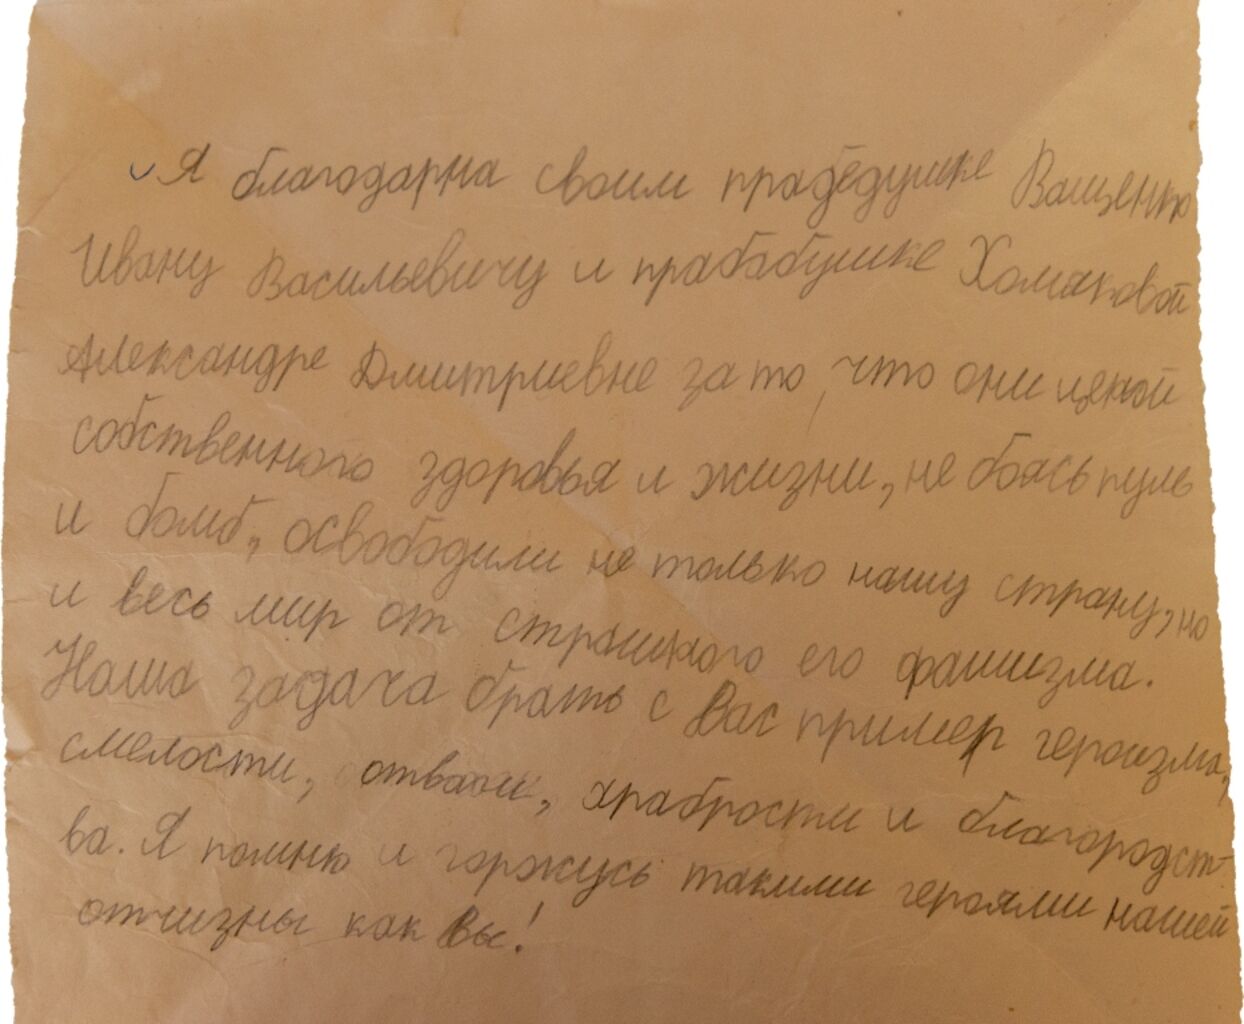 Я благодарна своим прадедушке Ващенко
Ивану Васильевичу и прабабушке Хомяковой
Александре Дмитриевне за то, что они ценой
собственного здоровья и жизни, не боясь пуль
и бомб, освободили не только нашу страну, но
и весь мир от страшного его фашизма.
Наша задача брать с Вас пример героизма,
смелости, отваги, храбрости и благородст-
ва. Я помню и горжусь такими героями нашей
отчизны как Вы!